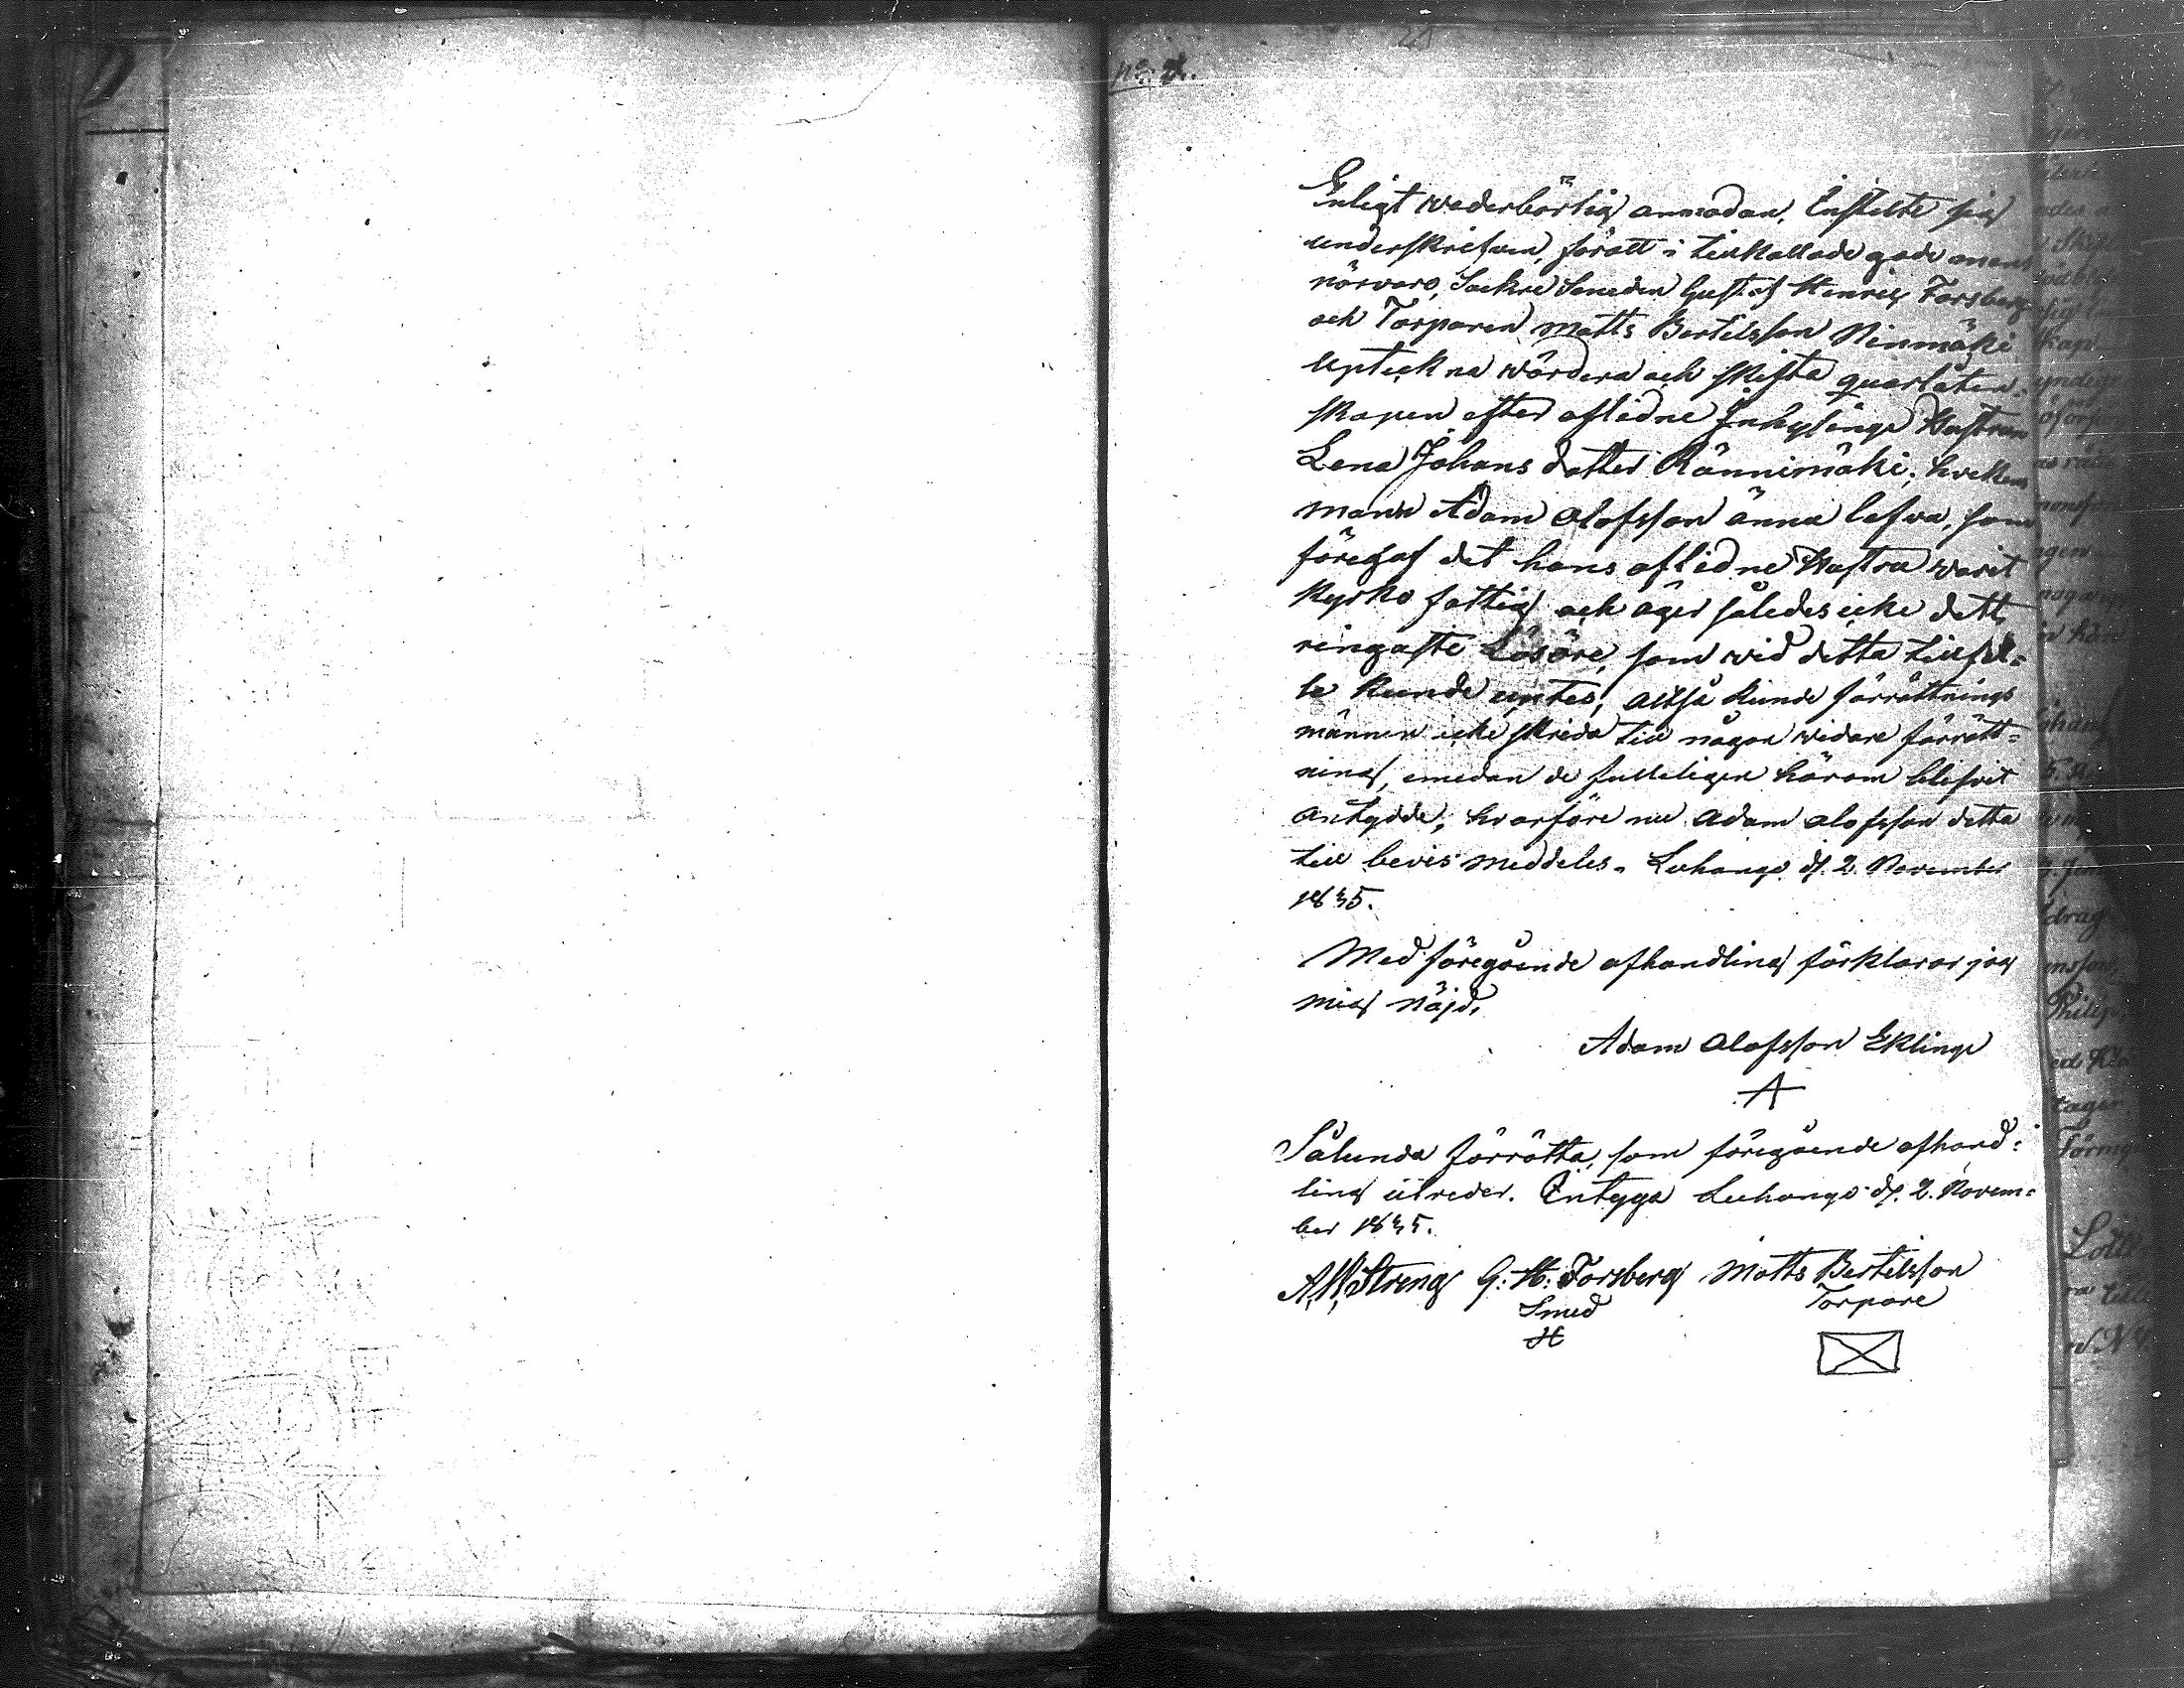 24
Enligt wederbörlig anmodan, Instälte sig
underskrifven, föratt i tillkallade gode mens
närvaro, Sockne Smeden Gustaf Henric Forsberg
och Torparen Matts Bertilsson Ninmäki
upteckna wärdera och skifta quarlåten-
skapen efter aflidne Inhysinge Hustrun
Lena Johans dotter Rännimäki, hvilkens
mann Adam Olofsson ännu lefva, som
föregaf det hans aflidne Hustru warit
Kyrko fattig och äger således icke dett
ringaste Lösöre, som wid detta tillfäl=
le kunde uptes, altså kunde förrättnings
männen icke skrida till någon widare förrätt=
ning, emedan de fulleligen härom blifvit
antydde, hvarföre nu Adam Olofsson detta
till bevis meddeles. Luhango d. 2. November
1835.
Med föregående afhandling förklarar jag
mig nöjd,
Adam Olofsson Eklings
A
Sålunda förrätta, som föregående afhand=
ling utreder. Intyga Luhango d. 2. Novem=
ber 1835.
A,W, Streng G: H: Forsberg Matts Bertilsson
Smed Torpare
H